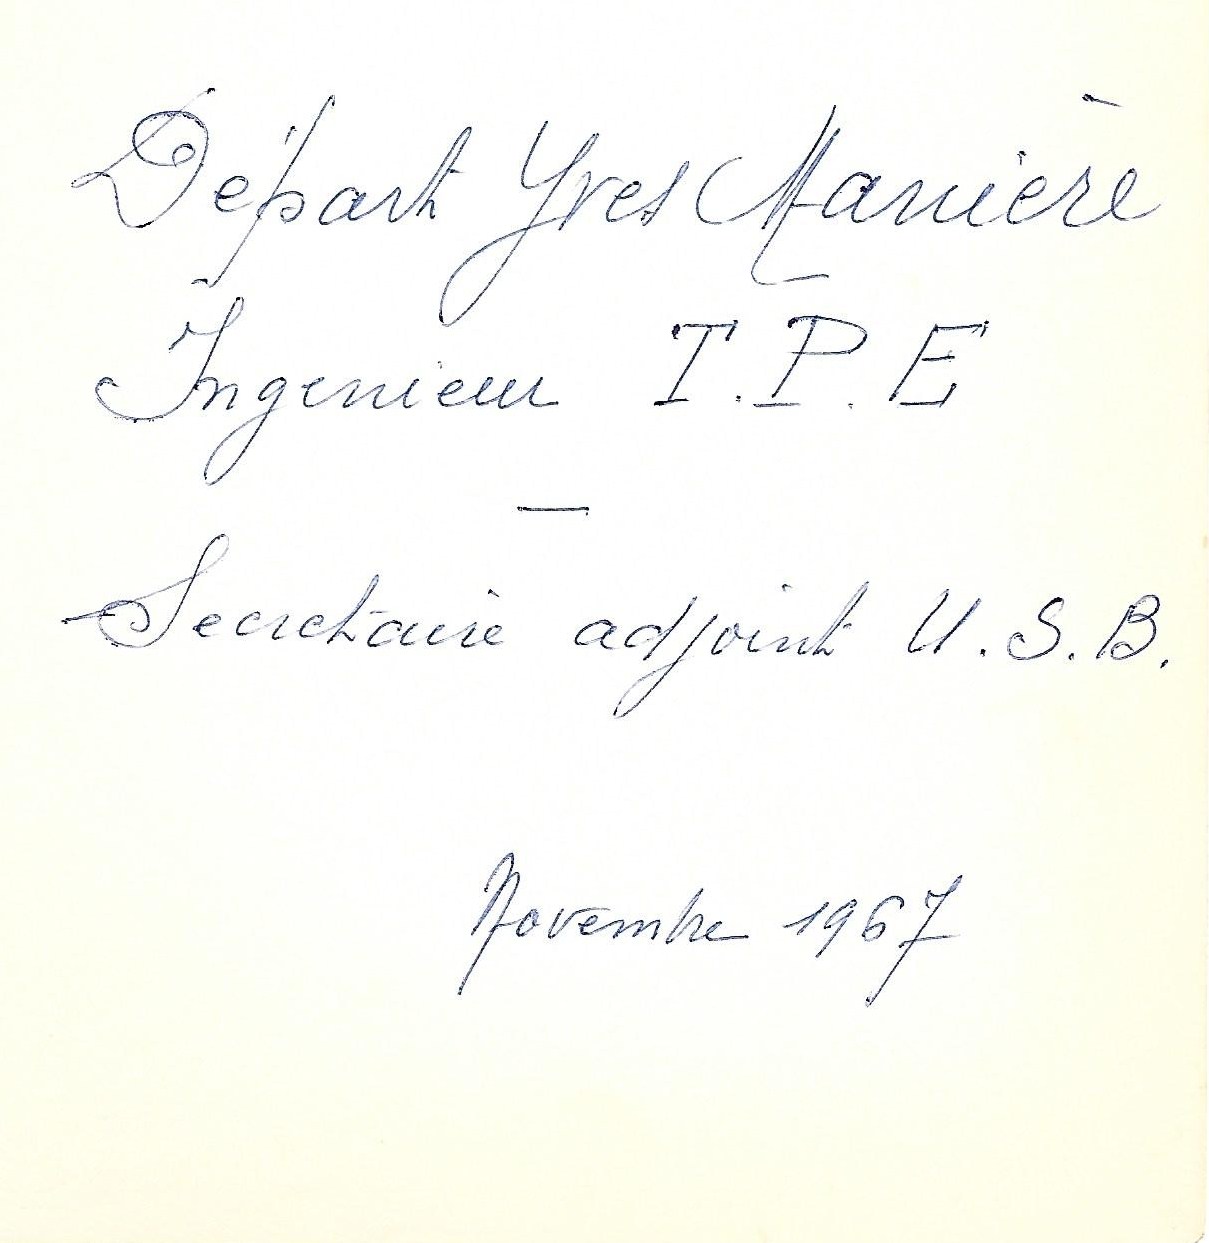 Départ Yves Manière
Ingenieur T.P.E
—
Secretaire adjoint U.S.B.
Novembre 1967